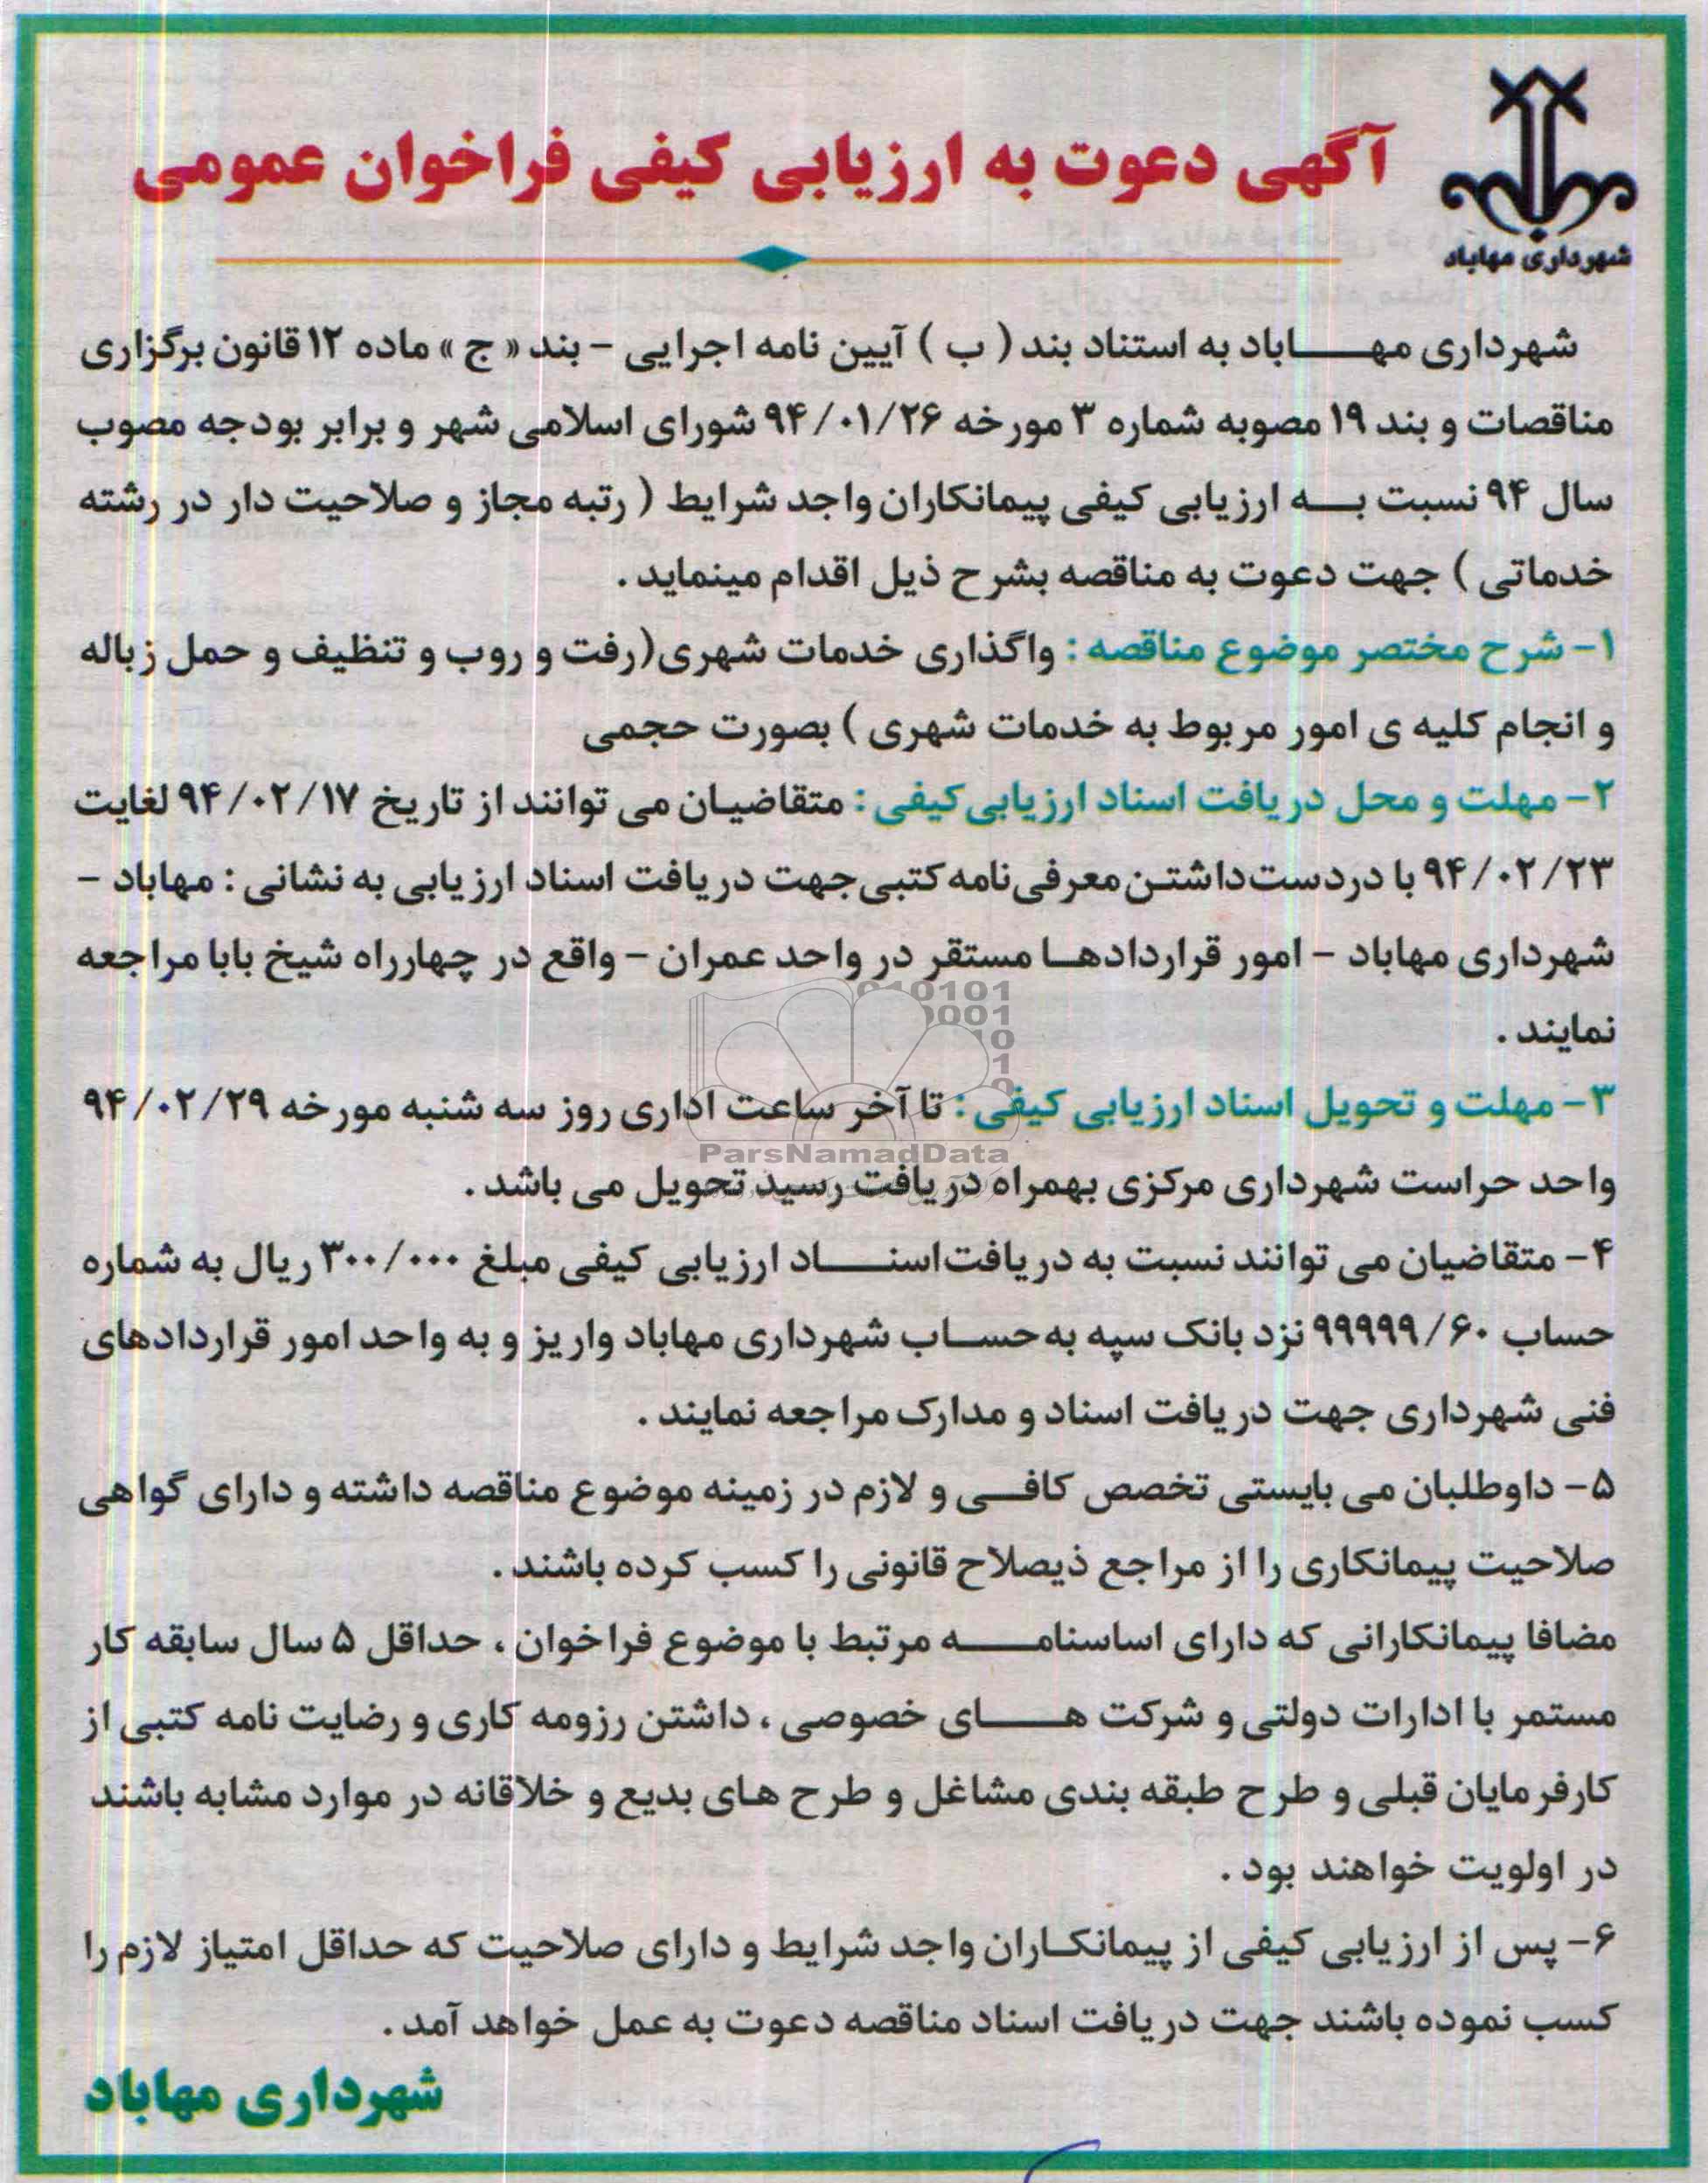 آگهی دعوت به ارزیابی کیفی فراخوان عمومی
شهرداری مهاباد
شهرداری مهـــاباد به استناد بند ( ب ) آیین نامه اجرایی – بند « ج » ماده ۱۲ قانون برگزاری
مناقصات و بند ۱۹ مصوبه شماره ۳ مورخه ۹۴/۰۱/۲۶ شورای اسلامی شهر و برابر بودجه مصوب
سال ۹۴ نسبت بـــه ارزیابی کیفی پیمانکاران واجد شرایط ( رتبه مجاز و صلاحیت دار در رشته
خدماتی ) جهت دعوت به مناقصه بشرح ذیل اقدام مینماید .
۱- شرح مختصر موضوع مناقصه : واگذاری خدمات شهری(رفت و روب و تنظیف و حمل زباله
و انجام کلیه ی امور مربوط به خدمات شهری ) بصورت حجمی
۲- مهلت و محل دریافت اسناد ارزیابی کیفی : متقاضیـان می توانند از تاریخ ۹۴/۰۲/۱۷ لغایت
۹۴/۰۲/۲۳ با دردست داشتـن معرفی نامه کتبی جهت دریافت اسناد ارزیابی به نشانی : مهاباد –
شهرداری مهاباد – امور قراردادهـا مستقر در واحد عمران – واقع در چهارراه شیخ بابا مراجعه
نمایند .
۳- مهلت و تحویل اسناد ارزیابی کیفی : تا آخر ساعت اداری روز سه شنبه مورخه ۹۴/۰۲/۲۹
ParsNamadData
واحد حراست شهرداری مرکزی بهمراه دریافت رسید تحویل می باشد .
۴- متقاضیان می توانند نسبت به دریافت اسنـــاد ارزیابی کیفی مبلغ ۳۰۰/۰۰۰ ریال به شماره
حساب ۹۹۹۹۹/۶۰ نزد بانک سپه به حســاب شهرداری مهاباد واریز و به واحد امور قراردادهای
فنی شهرداری جهت دریافت اسناد و مدارک مراجعه نمایند .
۵- داوطلبان می بایستی تخصص کافــی و لازم در زمینه موضوع مناقصه داشته و دارای گواهی
صلاحیت پیمانکاری را از مراجع ذیصلاح قانونی را کسب کرده باشند .
مضافا پیمانکارانی که دارای اساسنامـــه مرتبط با موضوع فراخوان ، حداقل ۵ سال سابقه کار
مستمر با ادارات دولتی و شرکت هـــای خصوصی ، داشتن رزومه کاری و رضایت نامه کتبی از
کارفرمایان قبلی و طرح طبقه بندی مشاغل و طرح های بدیع و خلاقانه در موارد مشابه باشند
در اولویت خواهند بود .
۶- پس از ارزیابی کیفی از پیمانکــاران واجد شرایط و دارای صلاحیت که حداقل امتیاز لازم را
کسب نموده باشند جهت دریافت اسناد مناقصه دعوت به عمل خواهد آمد .
شهرداری مهاباد